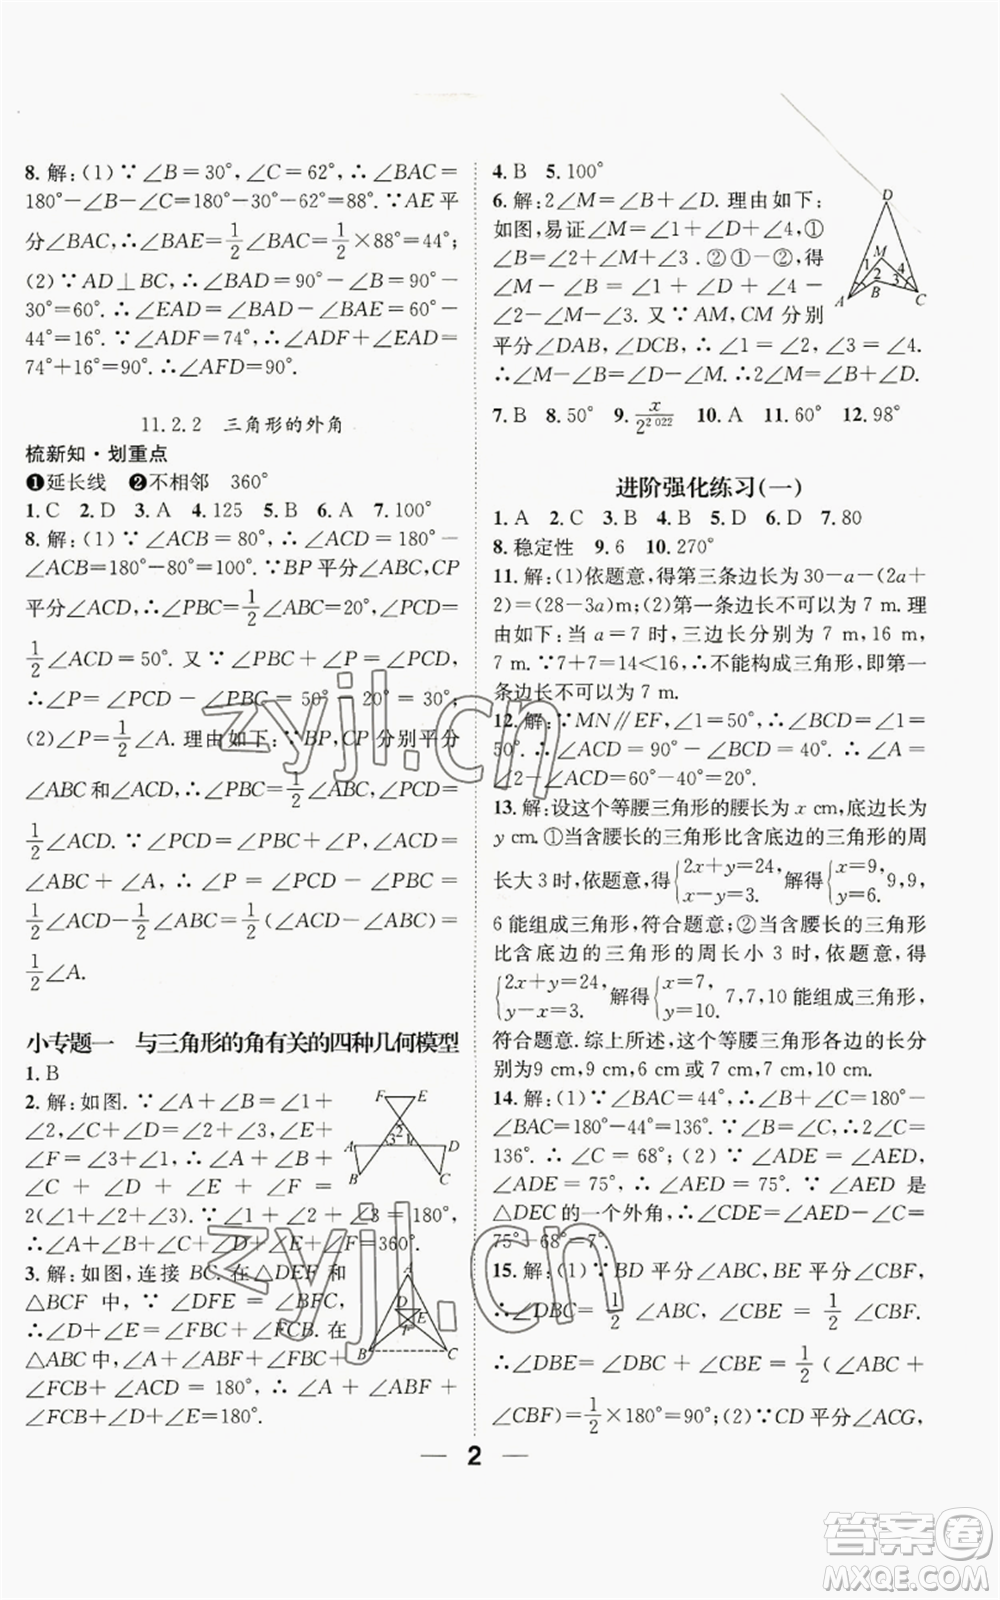 8. 解:(1)∵∠B=30°,∠C=62°,∴∠BAC=
180°-∠B-∠C=180°-30°-62°=88°. ∵AE平
分∠BAC,∴∠BAE=1/2∠BAC=1/2×88°=44°;
(2)∵AD⊥BC,∴∠BAD=90°-∠B=90°-
30°=60°. ∴∠EAD=∠BAD-∠BAE=60°-
44°=16°. ∵∠ADF=74°,∴∠ADF+∠EAD=
74°+16°=90°. ∴∠AFD=90°.
11.2.2 三角形的外角
梳新知·划重点
❶延长线 ❷不相邻 360°
1. C 2. D 3. A 4. 125 5. 100° 6. A 7. 100°
8. 解:(1)∵∠ACB=80°,∴∠ACD=180°-
∠ACB=180°-80°=100°. ∵BP平分∠ABC,CP
平分∠ACD,∴∠PBC=1/2∠ABC=20°,∠PCD=
1/2∠ACD=50°. 又∵∠PBC+∠P=∠PCD,
∴∠P=∠PCD-∠PBC=50°-20°=30°;
(2)∠P=1/2∠A. 理由如下:∵BP,CP分别平分
∠ABC和∠ACD,∴∠PBC=1/2∠ABC,∠PCD=
1/2∠ACD. ∵∠PCD=∠PBC+∠P,∠ACD=
∠ABC+∠A,∴∠P=∠PCD-∠PBC=
1/2∠ACD-1/2∠ABC=1/2(∠ACD-∠ABC)=
1/2∠A.
小专题一 与三角形的角有关的四种几何模型
1. B
2. 解:如图. ∵∠A+∠B=∠1+
∠2,∠C+∠D=∠1+∠3,∠E+
∠F=∠2+∠3,∴∠A+∠B+
∠C+∠D+∠E+∠F=
2(∠1+∠2+∠3). ∵∠1+∠2+∠3=180°,
∴∠A+∠B+∠C+∠D+∠E+∠F=360°.
F E
2
3 1
A D
B C
3. 解:如图,连接BC. 在△DEF和
△BCF中,∵∠DFE=∠BFC,
∴∠D+∠E=∠FBC+∠FCB. 在
△ABC中,∠A+∠ABF+∠FBC+
∠FCB+∠ACD=180°,∴∠A+∠ABF+
∠FCB+∠D+∠E=180°.
A
D E
F
B C
4. B 5. 100°
6. 解:2∠M=∠B+∠D. 理由如下:
如图,易证∠M=∠1+∠D+∠4,①
∠B=∠2+∠M+∠3. ②①-②,得
∠M-∠B=∠1+∠D+∠4-
∠2-∠M-∠3. 又∵AM,CM分别
平分∠DAB,∠DCB,∴∠1=∠2,∠3=∠4.
∴∠M-∠B=∠D-∠M. ∴2∠M=∠B+∠D.
D
M
1 2 3 4
A B C
7. B 8. 50° 9. x/2^2 022 10. A 11. 60° 12. 98°
进阶强化练习(一)
1. A 2. C 3. B 4. B 5. D 6. D 7. 80
8. 稳定性 9. 6 10. 270°
11. 解:(1)依题意,得第三条边长为30-a-(2a+
2)=(28-3a)m;(2)第一条边长不可以为7 m. 理
由如下:当a=7时,三边长分别为7 m,16 m,
7 m. ∵7+7=14<16,∴不能构成三角形,即第一
条边长不可以为7 m.
12. 解:∵MN∥EF,∠1=50°,∴∠BCD=∠1=
50°. ∴∠ACD=90°-∠BCD=40°. ∴∠A=
∠2-∠ACD=60°-40°=20°.
13. 解:设这个等腰三角形的腰长为x cm,底边长为
y cm. ①当含腰长的三角形比含底边的三角形的周
长大3时,依题意,得{2x+y=24, x-y=3. 解得{x=9, y=6. 9,9,
6能组成三角形,符合题意;②当含腰长的三角形
比含底边的三角形的周长小3时,依题意,得
{2x+y=24, y-x=3. 解得{x=7, y=10. 7,7,10能组成三角形,
符合题意. 综上所述,这个等腰三角形的各边长分
别为9 cm,9 cm,6 cm或7 cm,7 cm,10 cm.
14. 解:(1)∵∠BAC=44°,∴∠B+∠C=180°-
∠BAC=180°-44°=136°. ∵∠C+∠B=
136°. ∴∠C=68°;(2)∵∠ADE=∠AED,
∠ADE=75°,∴∠AED=75°. ∵∠AED是
△DEC的一个外角,∴∠CDE=∠AED-∠C=
75°-68°=7°.
15. 解:(1)∵BD平分∠ABC,BE平分∠CBF,
∴∠DBC=1/2∠ABC,∠CBE=1/2∠CBF.
∴∠DBE=∠DBC+∠CBE=1/2(∠ABC+
∠CBF)=1/2×180°=90°;(2)∵CD平分∠ACG,
— 2 —
zyjl.cn
zyjl.cn
答案圈
MXQE.COM